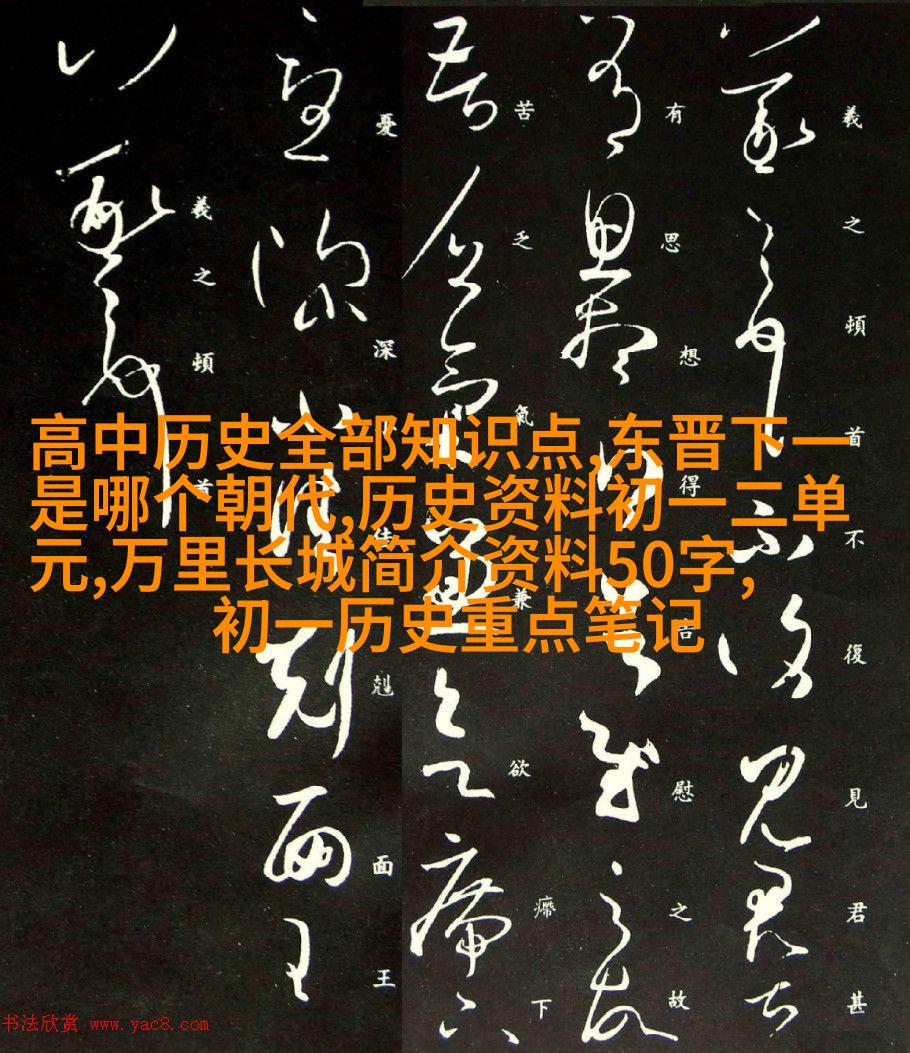 高中历史全部知识点,东晋下一
是哪个朝代,历史资料初一二单
元,万里长城简介资料50字,
初一历史重点笔记
羲之頓首不復見君甚
有思想得告慰之故
苦乏氣兼欲下
憂深佳剋面王
羲之頓首
书法欣赏 www.yac8.com